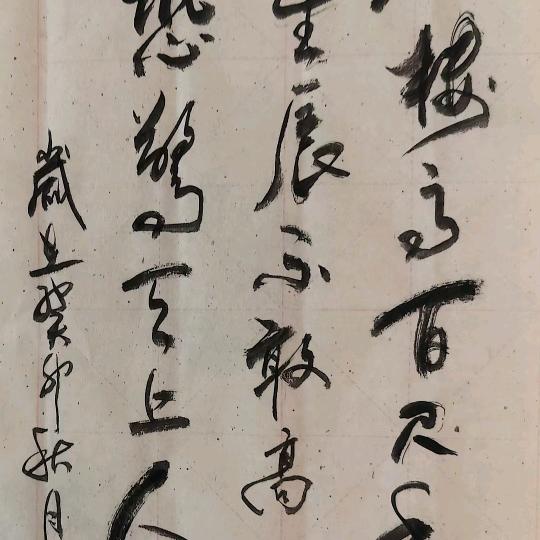 樓高百尺手
星辰不敢高
恐驚天上人
歲在癸卯秋月